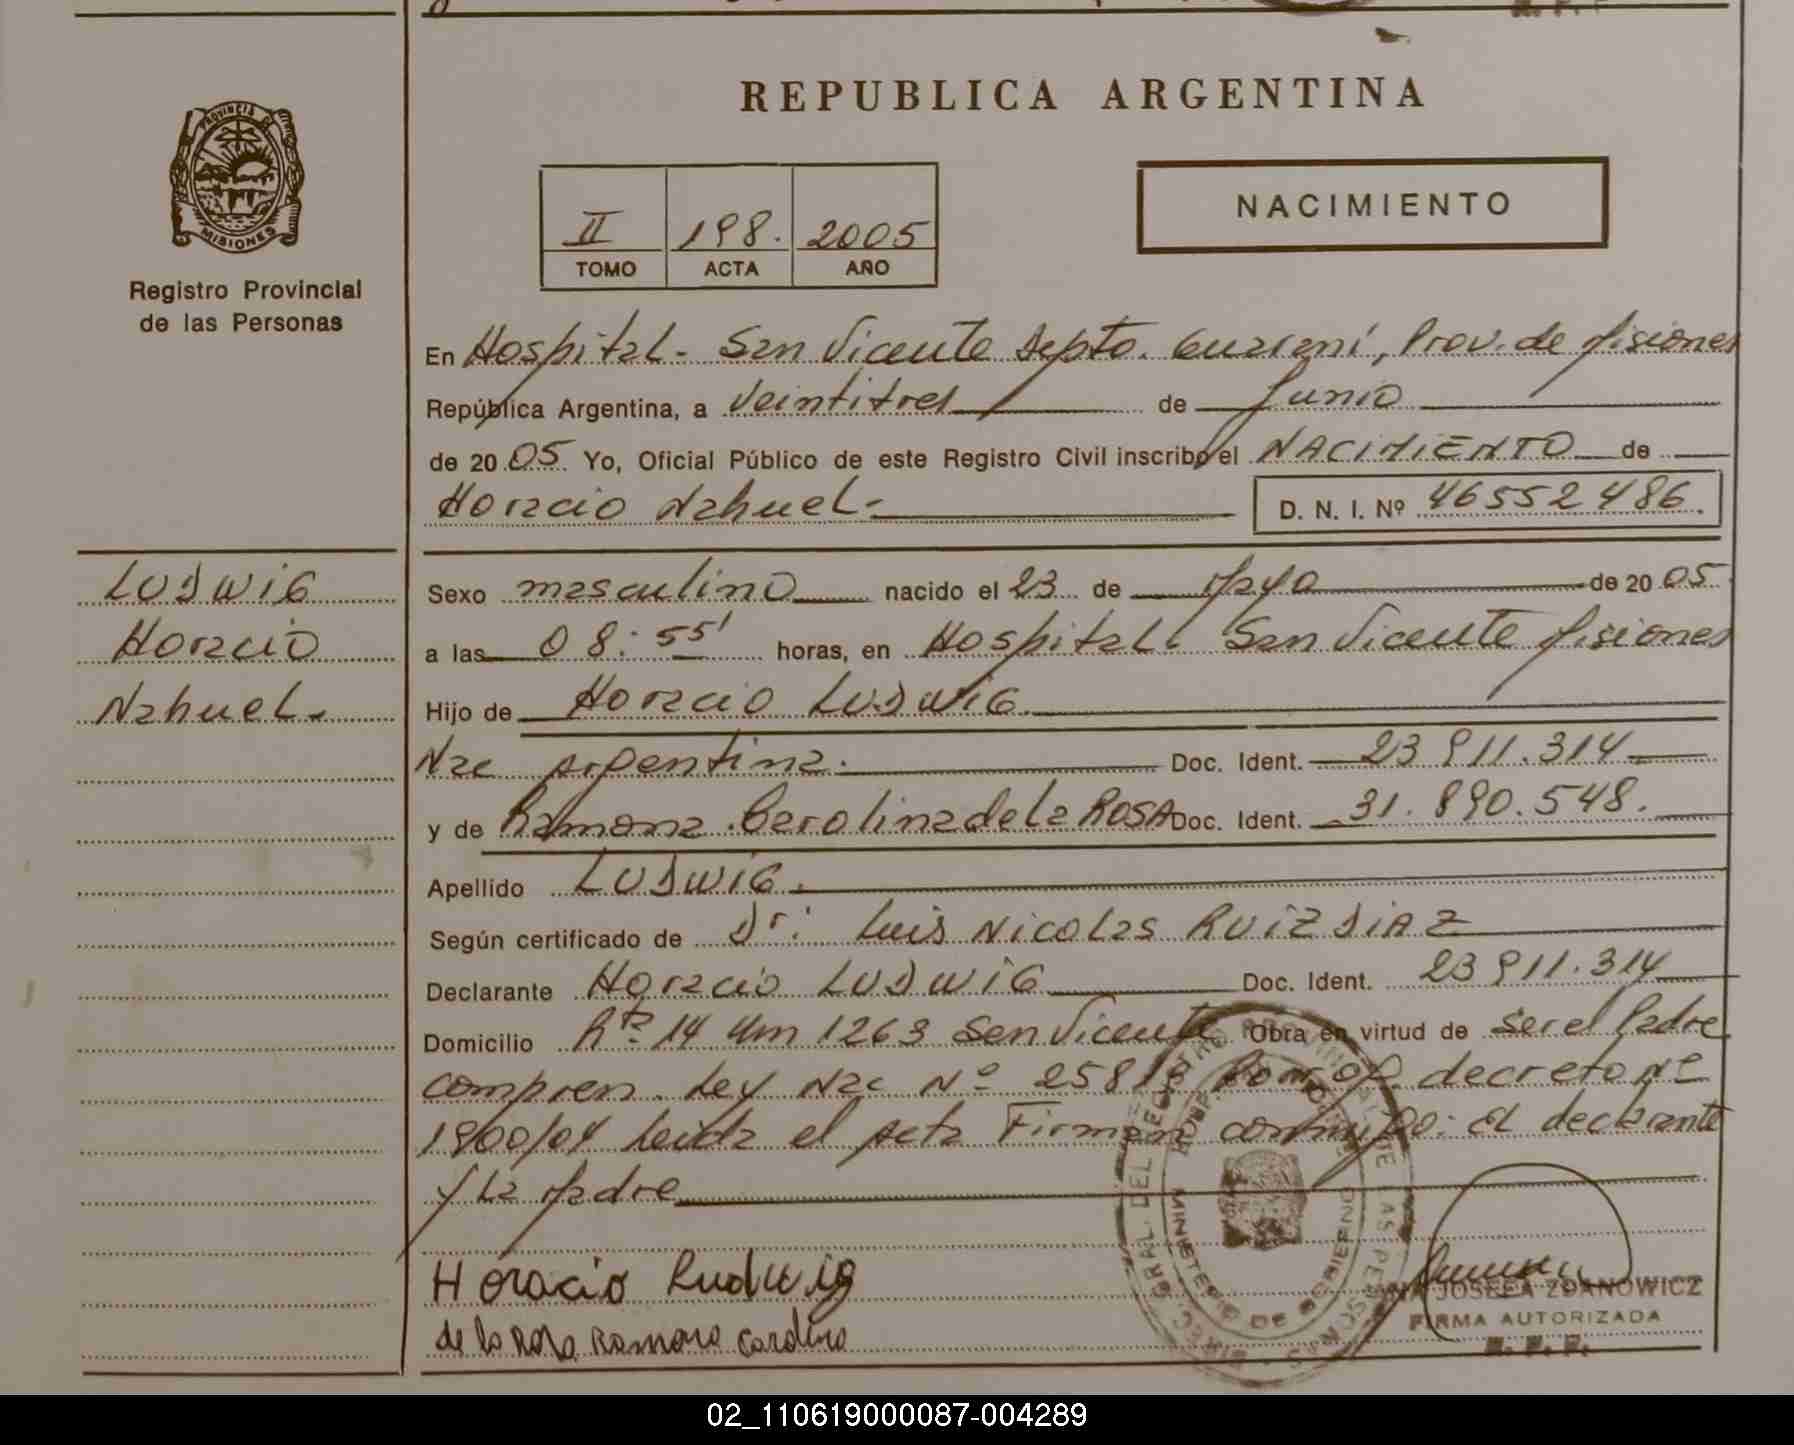 REPUBLICA ARGENTINA
PROVINCIA DE
MISIONES
Registro Provincial
de las Personas
II 198. 2005
TOMO ACTA AÑO
NACIMIENTO
En Hospital - San Vicente Depto. Guaraní, Prov. de Misiones
República Argentina, a Veintitres de Junio
de 2005 Yo, Oficial Público de este Registro Civil inscribo el NACIMIENTO de
Horacio Nahuel.- D. N. I. Nº 46552486.
LUDWIG
Horacio
Nahuel.
Sexo masculino nacido el 23 de Mayo de 2005
a las 08:55' horas, en Hospital. San Vicente Misiones
Hijo de Horacio LUDWIG.
Nac Argentina. Doc. Ident. 23 911.314
y de Ramona Carolina de la ROSA Doc. Ident. 31.890.548.
Apellido LUDWIG.
Según certificado de Dr: Luis Nicolas RUIZ DIAZ
Declarante Horacio LUDWIG Doc. Ident. 23 911.314
Domicilio Rta 14 Km 1263 San Vicente Obra en virtud de ser el Padre
compren. Ley Nac Nº decreto Nº
1900/04 Leida el acta Firman conmigo: el declarante
y La Madre
Horacio Ludwig
de la Rosa Ramona Carolina
DIREC. GRAL. DEL REGISTRO PROVINCIAL DE LAS PERSONAS
MINISTERIO DE GOBIERNO
JOSEFA ZDANOWICZ
FIRMA AUTORIZADA
R. P. P.
02_110619000087-004289